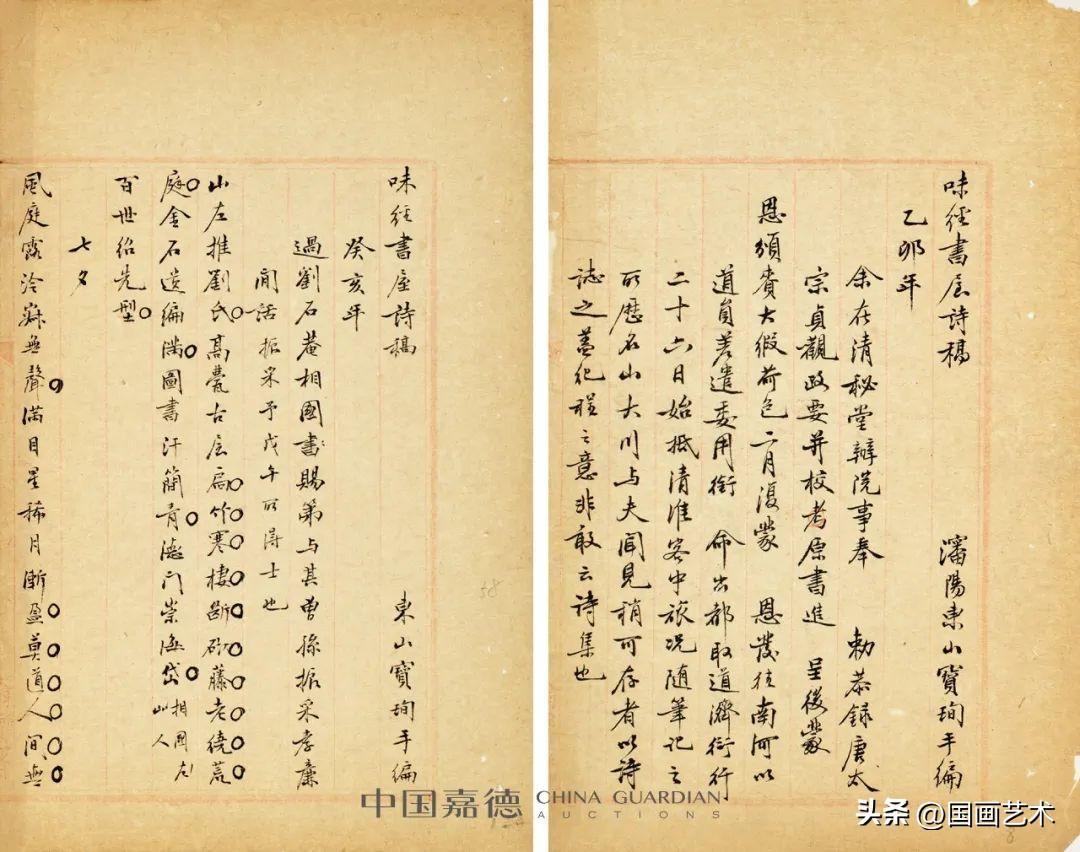 味經書屋詩稿 瀋陽東山寶珣手編
乙卯年
余在清秘堂辦院事奉 勅恭錄唐太
宗貞觀政要并校考原書進 呈後蒙
恩頒賚大緞荷包二月復蒙 恩發往南河以
道員差遣委用銜 命出都取道濟行
二十六日始抵清淮客中旅況隨筆記之
所歷名山大川与夫聞見稍可存者以詩
誌之蓋紀程之意非敢云詩集也
味經書屋詩稿 東山寶珣手編
癸亥年
過劉石菴相國書賜第与其曾孫振采孝廉
閒話振采予戊午所得士也
山左推劉氏高甍古屋扃竹寒棲斷砌藤老繞荒
庭金石遺編滿圖書汗簡青德門崇海岱相國左山人
百世紹先型
七夕
風庭露冷寂無聲滿目星稀月漸盈莫道人間無
58
中国嘉德 CHINA GUARDIAN
AUCTIONS
头条 @国画艺术